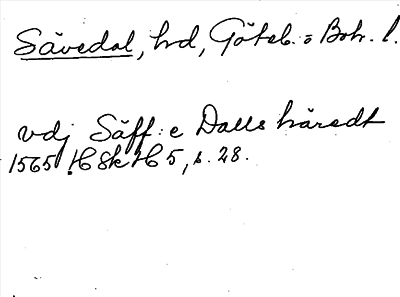 Sävedal, hd, Göteb. o Boh. l.
vdj Säff: e Dalls häredt
1565 HSkH 5, s. 28.